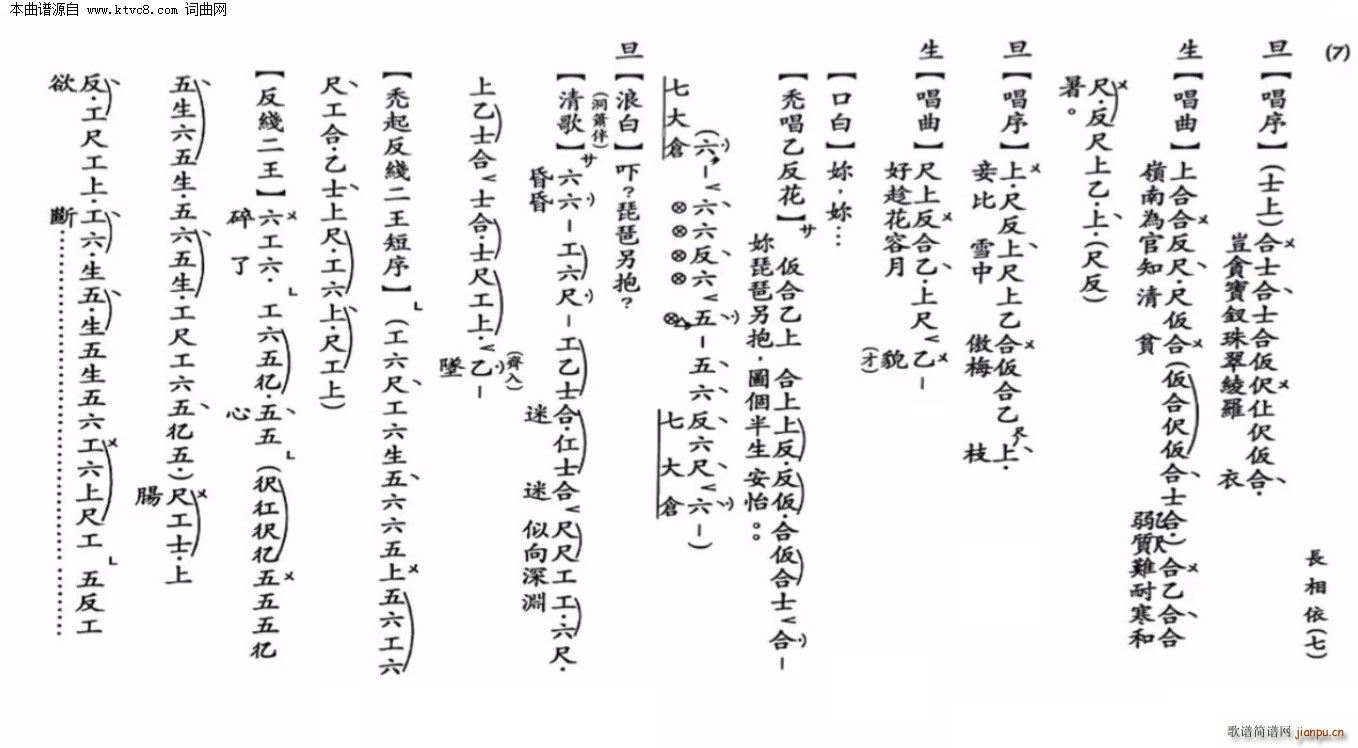 本曲谱源自 www.ktvc8.com 词曲网
(7)
長相依(七)
旦【唱序】(士上)合士合士合仮伬仩伬仮合.
豈貪寶釵珠翠綾羅 衣
生【唱曲】上合合反尺.尺仮合(仮合伬仮合士合.)合乙合合
嶺南為官知清 貧 弱質難耐寒和
尺.反尺上乙.上.(尺反)
暑。
旦【唱序】上.尺反上尺上乙合仮合乙上.
妾比 雪中 傲梅 枝
生【唱曲】尺上反合乙.上尺乙–
好趁花容月 貌
(才)
【口白】妳,妳…
【禿唱乙反花】サ 仮合乙上 合上上反.反仮.合仮合士合–
妳琵琶另抱,圖個半生 安怡。。
(六–六六反六五–五六反六尺六–)
七大倉⊗⊗⊗⊗⊗ 七大倉
旦【浪白】吓?琵琶另抱?
(洞簫伴)
【清歌】サ六六–工六尺–工乙士合.仜士合尺尺工工.六尺.
昏昏 迷 迷 似向深淵
上乙士合士合.士尺工上.乙–
墜
(齊入)
【禿起反綫二王短序】(工六尺工六生五六六五上五六工六
尺工合.乙士上尺工六上.尺工上)
【反綫二王】六工六.工六五亿.五五(伬仜伬亿五五五亿
碎了 心
五生六五生.五六五生.工尺工六五亿五.)尺工士.上
腸
反.工尺工上.工六.生五.生五生五六工六上尺工 五反工
欲 斷………………
歌谱简谱网 jianpu.cn